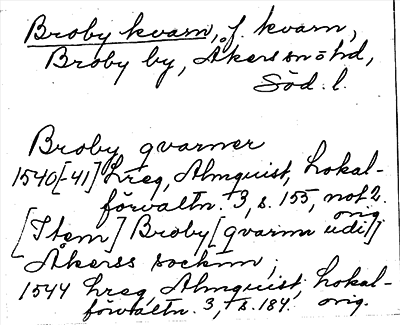 Broby kvarn, f. kvarn,
Broby by, Åkers sn o hd,
Söd. l.
Broby qvarner
1540[-41] hreg, Almquist, Lokal-
förvaltn. 3, s. 155, not 2.
orig.
[Item] Broby [qvarnn udi]
Åkerss socknn;
1544 hreg, Almquist, Lokal-
förvaltn. 3, s. 184. orig.